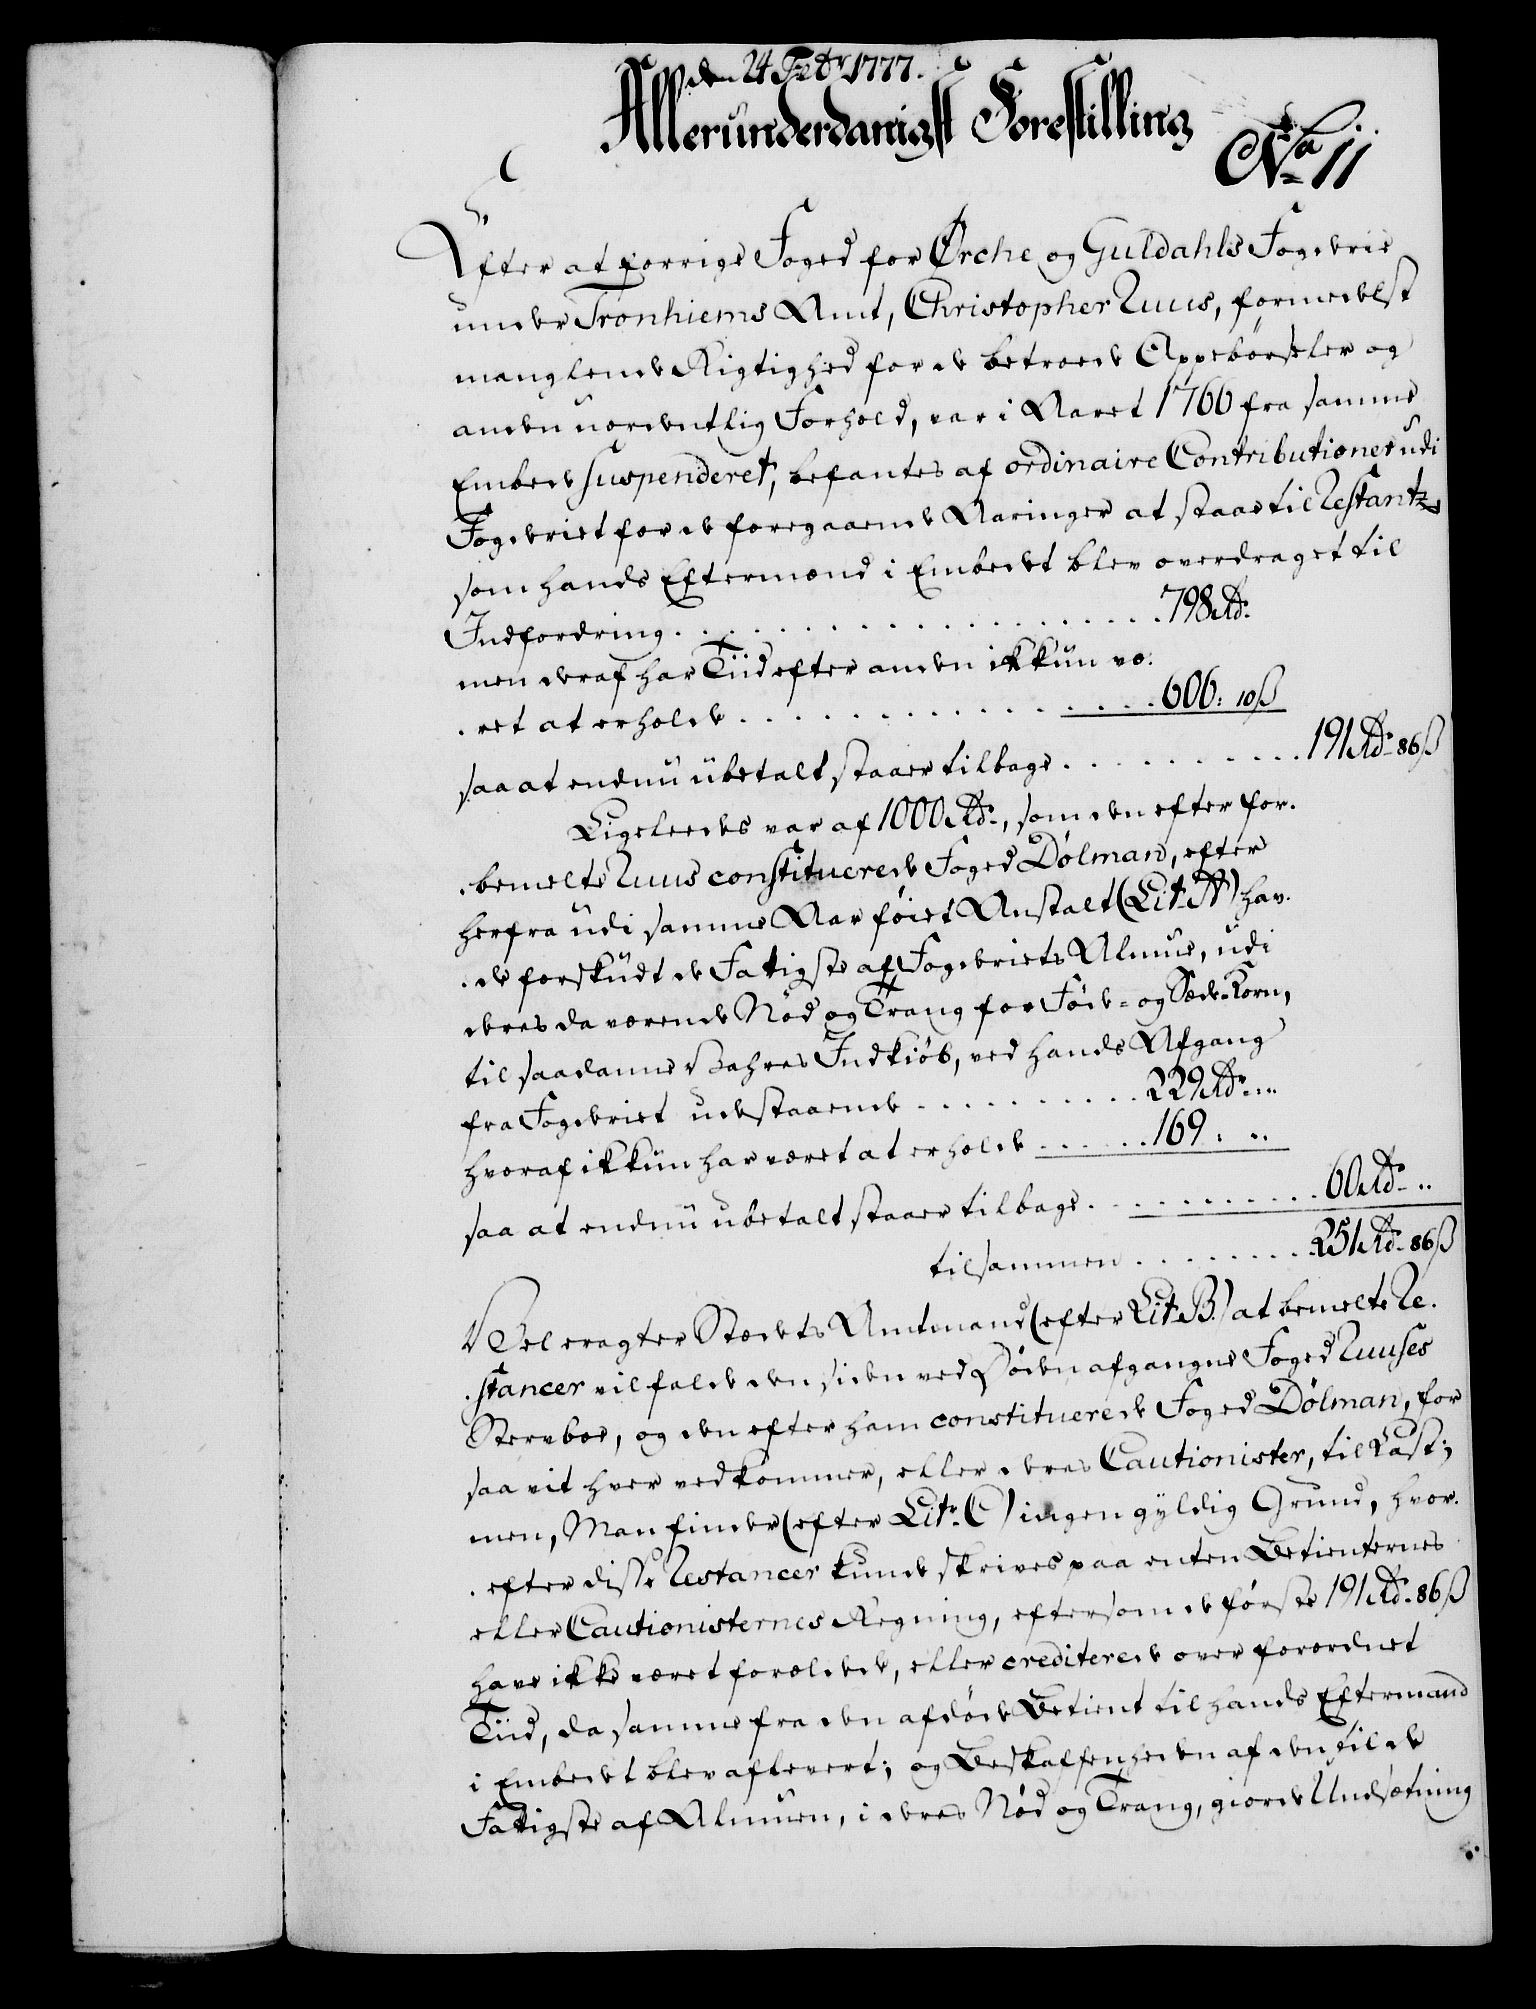 den 24 Febr 1777.
Allerunderdanigst Forestilling
No 11
Efter at forrige Foged for Ørche og Guldahls Fogderie
under Tronhiems Amt, Christopher Ruus, formedelst
manglende Rigtighed for de betroede Oppebørseler og
anden uordentlig Forhold, var i Aaret 1766 fra samme
Embede suspenderet, befantes af ordinaire Contributioner udi
Fogderiet for de foregaaende Aaringer at staae til Restantz,
som hands Eftermænd i Embedet blev overdraget til
Indfordring . . . . . . . . . . . . . . . . . . 798 Rdr.
men deraf har Tiid efter anden ikkun væ-
-ret at erholde . . . . . . . . . . . . . . . . 606: 10 ß
saa at endnu ubetalt staaer tilbage . . . . . . . . . . 191 Rdr. 86 ß
Ligeleedes var af 1000 Rdr., som den efter for-
-bemelte Ruus constituerede Foged Dölman, efter
herfra udi samme Aar føiet Anstalt (Lit. A) hav-
-de forskudt de Fatigste af Fogderiets Almue, udi
deres da værende Nød og Trang for Føde- og Sæde-Korn,
til saadanne Vahres Indkiöb, ved hands Afgang
fra Fogderiet udestaaende . . . . . . . . . . 229 Rdr. ..
hvoraf ikkun har været at erholde . . . . . . 169. ..
saa at endnu ubetalt staaer tilbage . . . . . . . . . . 60 Rdr. ..
tilsammen . . . . . . . . 251 Rdr. 86 ß
Vel eragter Stedets Amtmand (efter Lit. B.) at bemelte Re-
-stancer vil falde den siden ved Døden afgangne Foged Ruuses
Stervboe, og den efter ham constituerede Foged Dölman, for
saavit hver vedkommer, eller deres Cautionister, til Last;
men, Man finder (efter Litr. C) ingen gyldig Grund, hvor-
-efter disse Restancer kunde skrives paa enten Betienternes
eller Cautionisternes Regning, eftersom de første 191 Rdr. 86 ß
have ikke været forældede, eller crediterede over forordnet
Tiid, da samme fra den afdöde Betient til hands Eftermand
i Embedet blev afleveret; og Beskaffenheden af den til de
Fatigste af Almuen, i deres Nød og Trang, giorde Undsætning